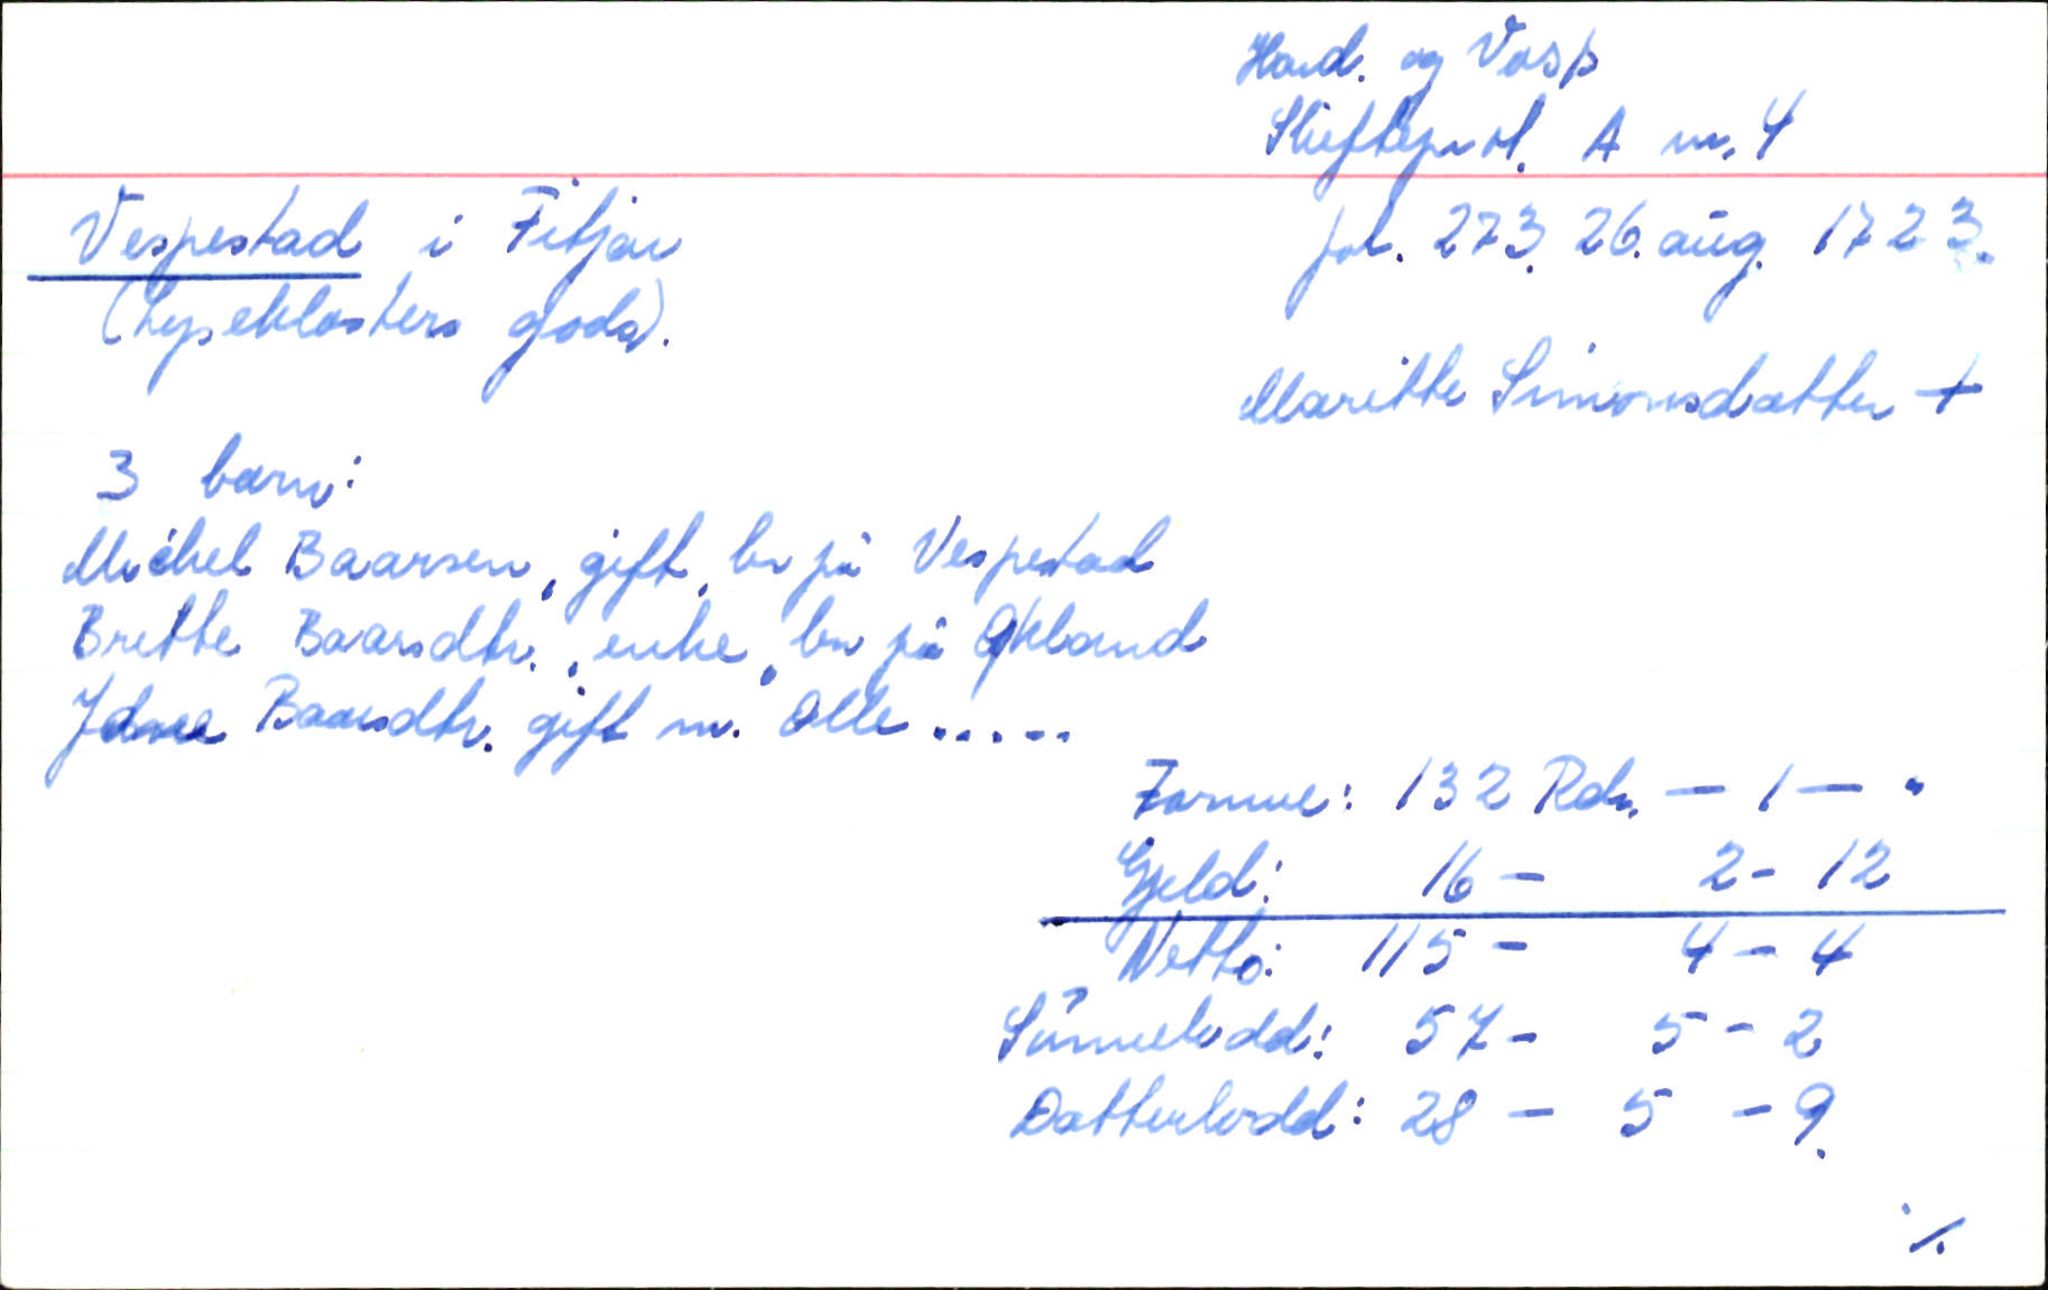 Hard. og Voss
Skifteprot. A nr. 4
Vespestad i Fitjar
fol. 273. 26. aug. 1723.
(Lyseklosters gods).
Maritte Simonsdatter +
3 barn:
Michel Baarsen, gift, br på Vespestad
Britte Baarsdtr., enke, br på Økland
Baarsdtr. gift m. Olle .....
Formue: 132 Rdr. — 1 — "
Gjeld: 16 — 2 - 12
Netto: 115 - 4 - 4
Sønnelodd: 57 - 5 - 2
Datterlodd: 28 - 5 - 9.
./.